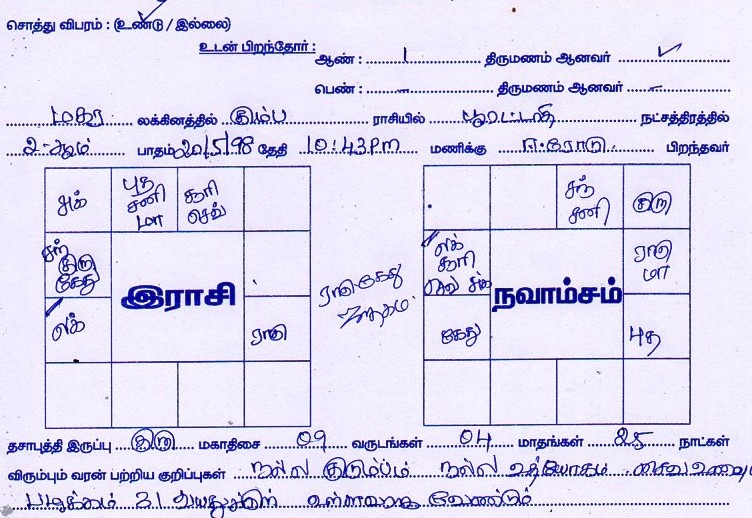 சொத்து விபரம் : (உண்டு / இல்லை)
உடன் பிறந்தோர் : ஆண் : 1 திருமணம் ஆனவர்
பெண் : – திருமணம் ஆனவர் –
மகர லக்கினத்தில் கும்ப ராசியில் பூரட்டாதி நட்சத்திரத்தில்
2-ஆம் பாதம் 20/5/98 தேதி 10:43 PM மணிக்கு ஈரோடு பிறந்தவர்
சுக் புத சனி மா சூரி செவ் சந் சனி குரு
சந் குரு கேது லக் சூரி செவ் சுக் ராகு மா
இராசி ராகு கேது ஜாதகம். நவாம்சம்
லக் ராகு கேது புத
தசாபுத்தி இருப்பு குரு மகாதிசை 09 வருடங்கள் 04 மாதங்கள் 25 நாட்கள்
விரும்பும் வரன் பற்றிய குறிப்புகள் நல்ல குடும்பம் நல்ல உத்யோகம்
31 வயதுக்குள் வேண்டும்